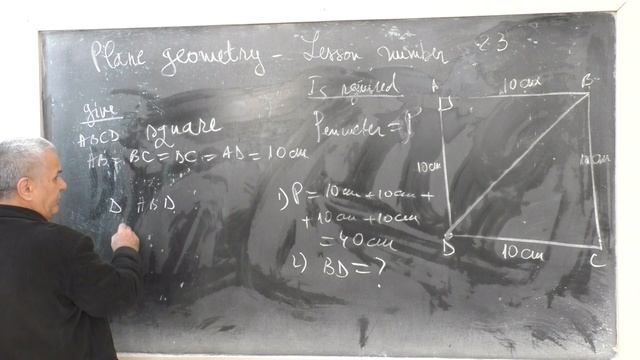 Plane geometry - Lesson number 23
give
ABCD square
AB = BC = DC = AD = 10 cm
Δ ABD
Is required
Perimeter = P
1) P = 10 cm + 10 cm +
+ 10 cm + 10 cm
= 40 cm
2) BD = ?
A 10 cm B
10 cm 10 cm
D 10 cm C